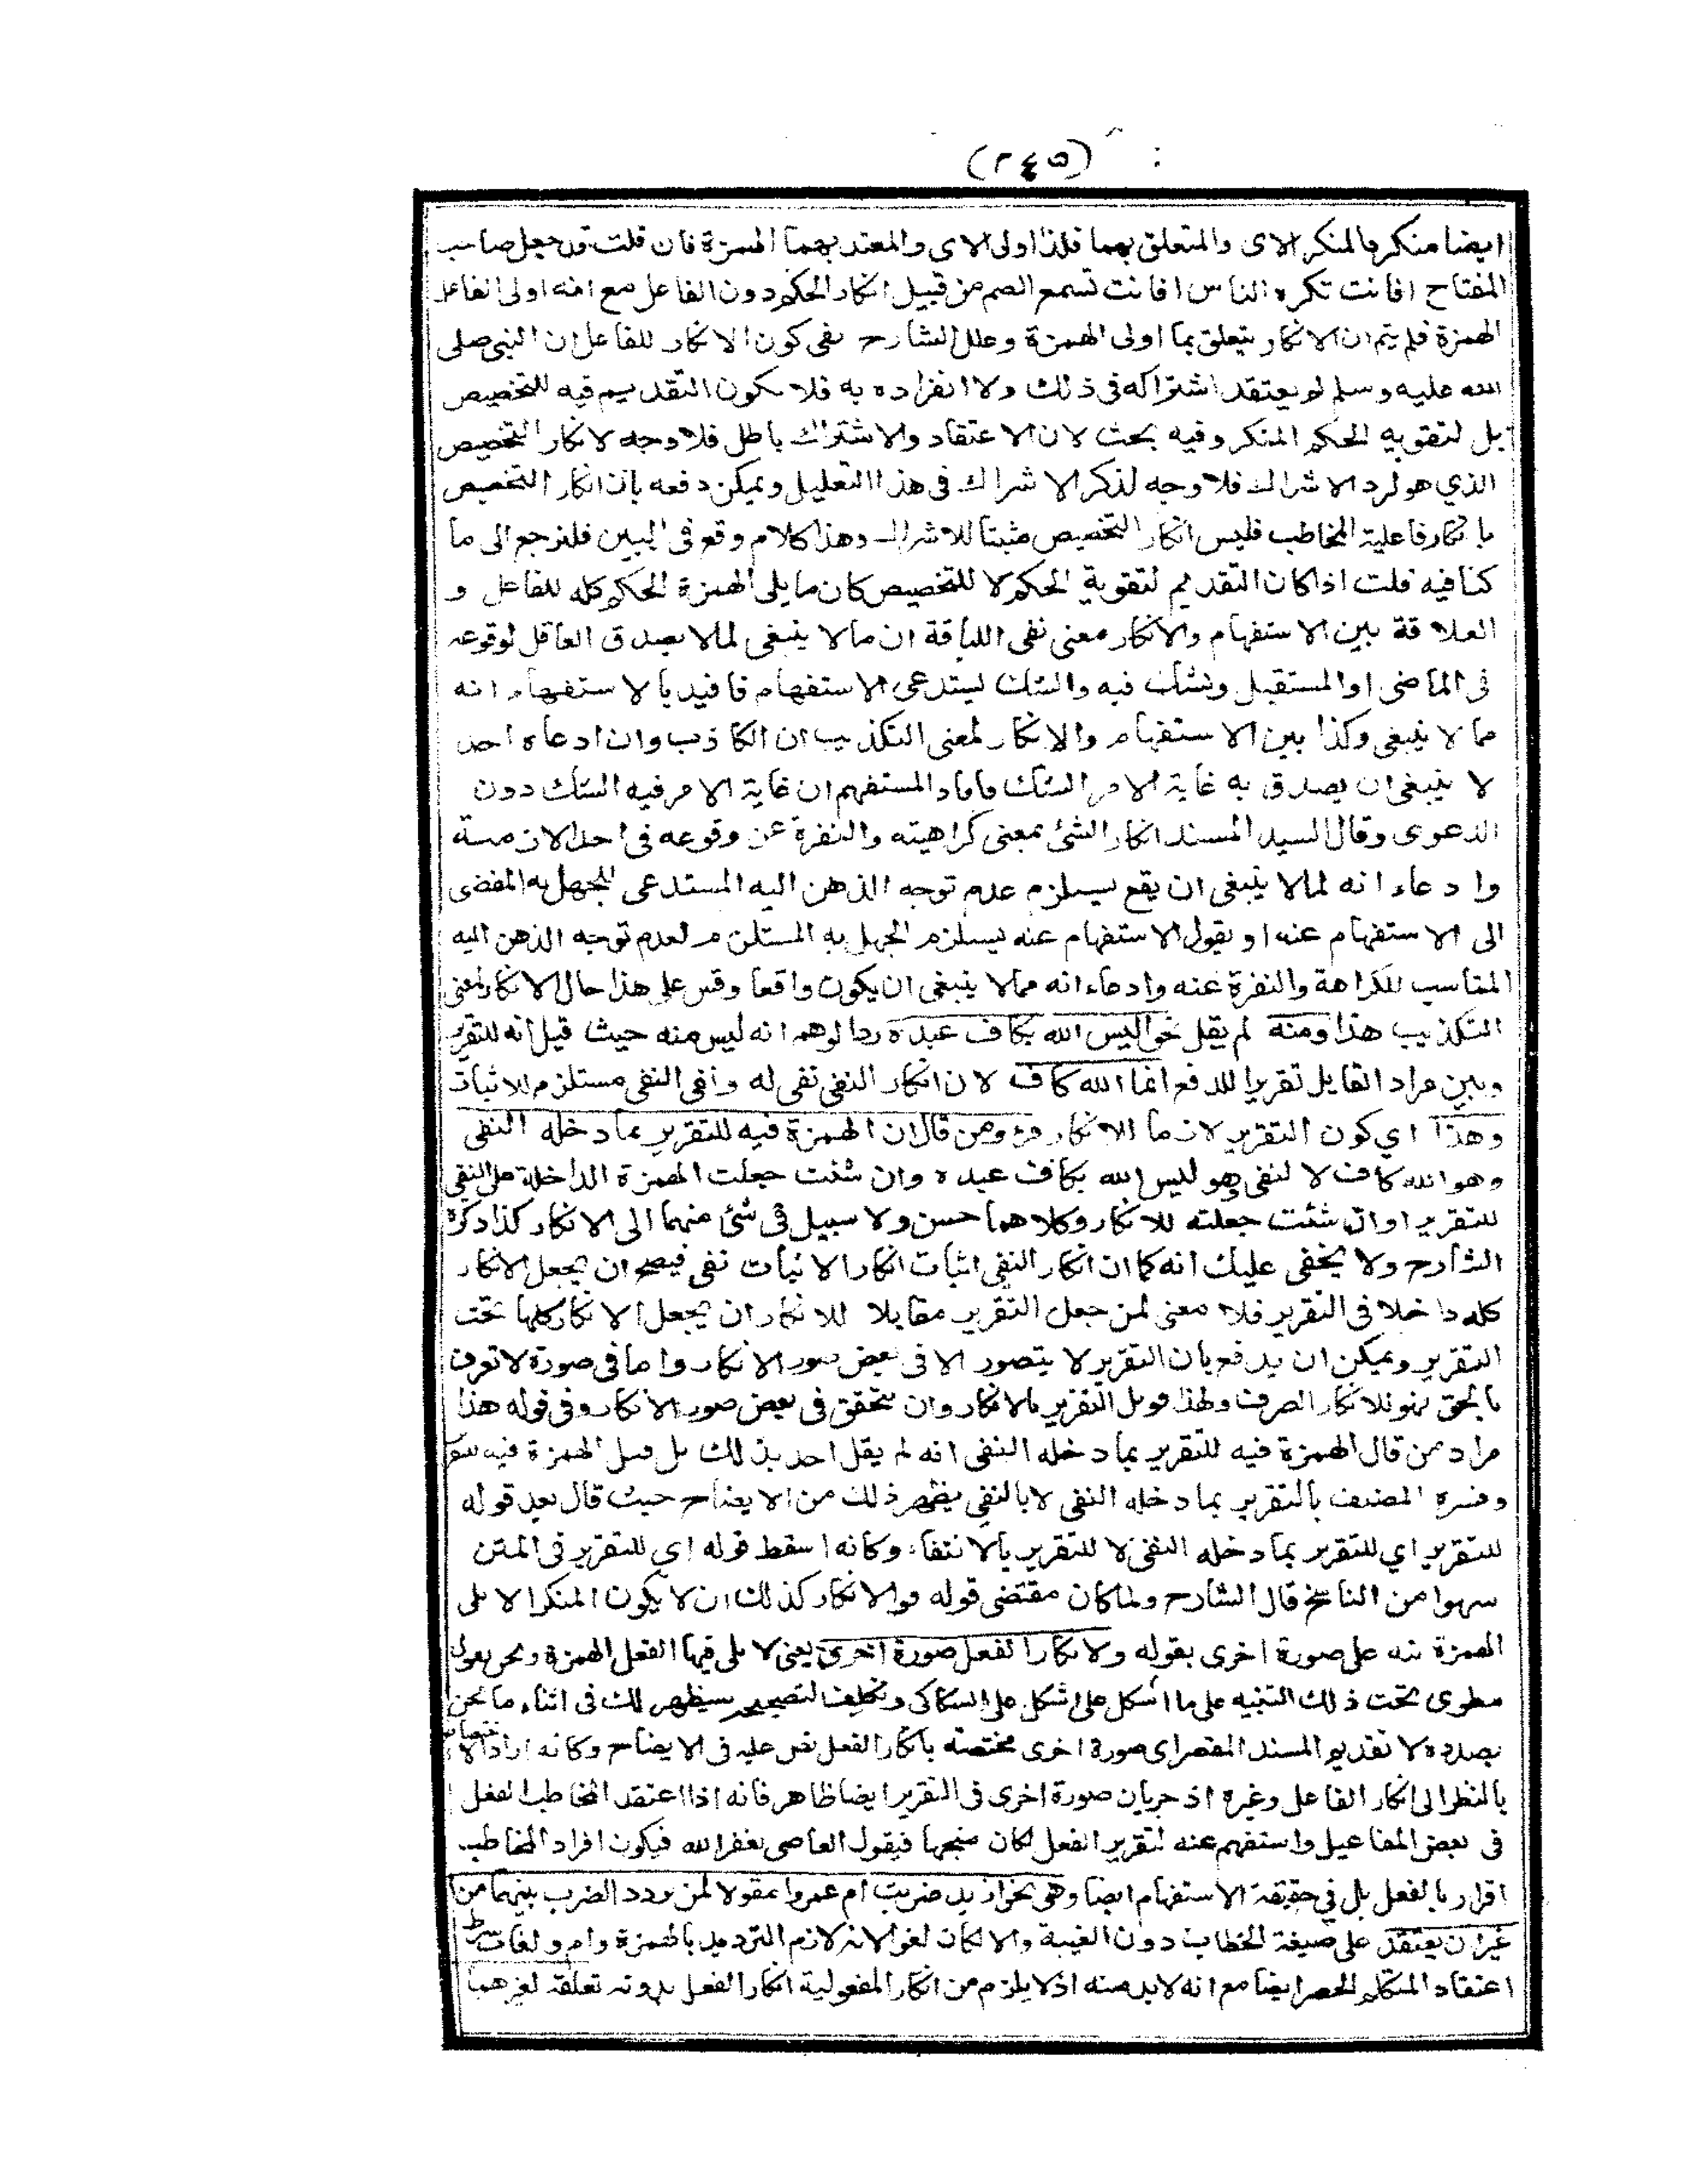 (٢٤٥)
ايضا منكر بالمنكر الاى والمتعلق بهما فلذا اولى الاى والمعتد بهما الهمزة فان قلت قد جعل صاحب
المفتاح افانت تكره الناس افانت تسمع الصم من قبيل انكار الحكم دون الفاعل مع انه اولى الفاعل
الهمزة فلم يتم ان الانكار يتعلق بما اولى الهمزة وعلل الشارح نفى كون الانكار للفاعل ان النبى صلى
الله عليه وسلم لو يعتقد اشتراكه فى ذلك ولا انفراده به فلا يكون التقديم فيه للتخصيص
بل لتقويه الحكم المنكر وفيه بحث لان الاعتقاد والاشتراك باطل فلا وجه لانكار التخصيص
الذي هو لرد الاشراك فلا وجه لذكر الاشراك فى هذا التعليل ويمكن دفعه بان انكار التخصيص
بانكار فاعلية المخاطب فليس انكار التخصيص مثبتا للاشراك وهذا كلام وقع فى البين فلنرجع الى ما
كنا فيه قلت اذا كان التقديم لتقوية الحكم لا للتخصيص كان ما يلى الهمزة الحكم كله للفاعل و
العلاقة بين الاستفهام والانكار معنى نفى اللياقة ان ما لا ينبغى لما لا يصدق العاقل لوقوعه
فى الماضى او المستقبل ونشك فيه والشك يستدعى الاستفهام فافيد بالاستفهام انه
مما لا ينبغى وكذا بين الاستفهام والانكار لمعنى التكذيب ان الكاذب وان ادعاه احد
لا ينبغى ان يصدق به غاية الامر الشك فافاد المستفهم ان غاية الامر فيه الشك دون
الدعوى وقال السيد المسند انكار الشئ بمعنى كراهيته والنفرة عن وقوعه فى احد الازمنة
وادعاء انه لما لا ينبغى ان يقع يسلزم عدم توجه الذهن اليه المستدعى للجهل به المفضى
الى الاستفهام عنه او نقول الاستفهام عنه يسلزم الجهل به المستلزم لعدم توجه الذهن اليه
المناسب للكراهة والنفرة عنه وادعاء انه مما لا ينبغى ان يكون واقعا وقس على هذا حال الانكار لمعنى
التكذيب هذا ومنه لم يقل نحو اليس الله بكاف عبده ردا لوهم انه ليس منه حيث قيل انه للتقرير
وبين مراد القايل تقريرا للدفع انما الله كاف لان انكار النفى نفى له ونفى النفى مستلزم للاثبات
وهذا اي كون التقرير لازما للانكار ومن قال ان الهمزة فيه للتقرير بما دخله النفى
وهو الله كاف لا لنفى وهو ليس الله بكاف عبده وان شئت جعلت الهمزة الداخلة على النفى
للتقرير او ان شئت جعلته للانكار وكلاهما حسن ولا سبيل فى شئ منهما الى الانكار كذا ذكره
الشارح ولا يخفى عليك انه كما ان انكار النفى اثبات انكار الاثبات نفى فيصح ان يجعل الانكار
كله داخلا فى التقرير فلا معنى لمن جعل التقرير مقابلا للانكار ان يجعل الانكار كلها تحت
التقرير ويمكن ان يدفع بان التقرير لا يتصور الا فى بعض صور الانكار واما فى صورة لا تعرف
بالحق فهو للانكار الصرف ولهذا قوبل التقرير بالانكار وان تحقق فى بعض صور الانكار وفى قوله هذا
مراد من قال الهمزة فيه للتقرير بما دخله النفى انه لم يقل احد بذلك بل قيل الهمزة فيه
وفسره المصنف بالتقرير بما دخله النفى لا بالنفى يظهر ذلك من الايضاح حيث قال بعد قوله
للتقرير اي للتقرير بما دخله النفى لا للتقرير بالانتفاء وكانه اسقط قوله اي للتقرير فى المتن
سهوا من الناسخ قال الشارح ولما كان مقتضى قوله والانكار كذلك ان لا يكون المنكر الا يلى
الهمزة نبه على صورة اخرى بقوله ولانكار الفعل صورة اخرى يعنى لا يلى فيها الفعل الهمزة ونحن نقول
مطوى تحت ذلك التنبيه على ما اشكل على اشكل على السكاكى وتكلف لتصحيحه سيظهر لك فى اثناء ما نحن
بصدده لا تقديم المسند المقصر اى صورة اخرى مختصة بانكار الفعل نص عليه فى الايضاح وكانه اراد
بالنظر الى انكار الفاعل وغيره اذ جريان صورة اخرى فى التقرير ايضا ظاهر فانه اذا اعتقد المخاطب الفعل
فى بعض المفاعيل واستفهم عنه لتقرير الفعل لكان متجها فيقول العاصى يغفر الله فيكون افراد المخاطب
اقرار بالفعل بل في حقيقة الاستفهام ايضا وهى نحو ازيد ضربت ام عمروا مقولا لمن يردد الضرب بينهما من
غير ان يعتقد على صيغة الخطاب دون الغيبة والا لكان لغوا لانه لازم الترديد بالهمزة وام ولغات
اعتقاد المتكلم الحصر ايضا مع انه لابد منه اذ لا يلزم من انكار المفعولية انكار الفعل بدونه تعلقه لغيرهما